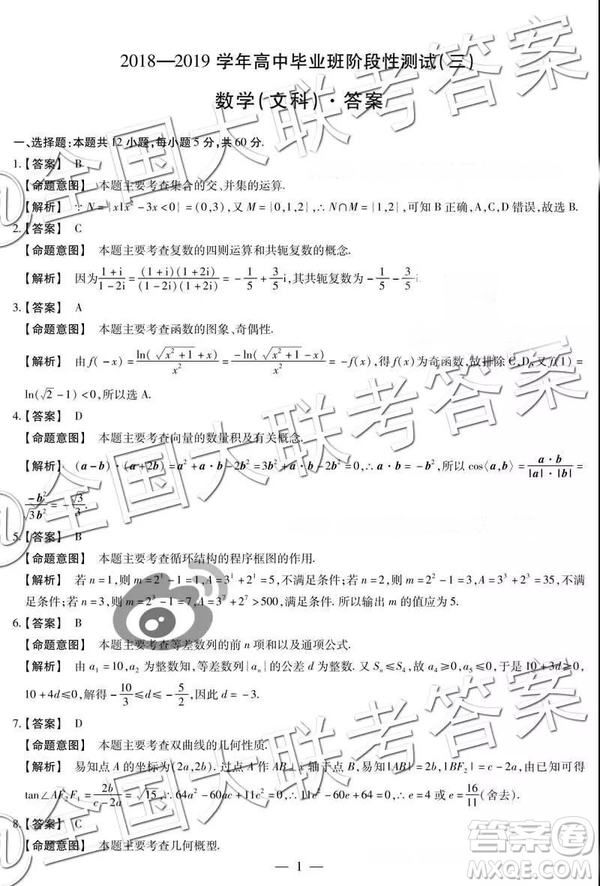 2018—2019 学年高中毕业班阶段性测试(三)
数学(文科)·答案
一、选择题:本题共12小题,每小题5分,共60分.
1.【答案】 B
【命题意图】 本题主要考查集合的交、并集的运算.
【解析】 ∵N={x|x²-3x<0}=(0,3),又M={0,1,2},∴N∩M={1,2},可知B正确,A,C,D错误,故选B.
2.【答案】 C
【命题意图】 本题主要考查复数的四则运算和共轭复数的概念.
【解析】 因为(1+i)/(1-2i)=(1+i)(1+2i)/(1-2i)(1+2i)=-1/5+3/5i,其共轭复数为-1/5-3/5i.
3.【答案】 A
【命题意图】 本题主要考查函数的图象、奇偶性.
【解析】 由f(-x)=ln(√(x²+1)+x)/x²=-ln(√(x²+1)-x)/x²=-f(x),得f(x)为奇函数,故排除C,D,又f(1)=
ln(√2-1)<0,所以选A.
4.【答案】 D
【命题意图】 本题主要考查向量的数量积及有关概念.
【解析】 (a-b)·(a+2b)=a²+a·b-2b²=3b²+a·b-2b²=0,∴a·b=-b²,所以cos⟨a,b⟩=a·b/|a|·|b|=
-b²/√3b²=-√3/3.
5.【答案】 B
【命题意图】 本题主要考查循环结构的程序框图的作用.
【解析】 若n=1,则m=2¹-1=1,A=3¹+1²=5,不满足条件;若n=2,则m=2²-1=3,A=3³+2³=35,不
满足条件;若n=3,则m=2³-1=7,A=3⁷+2⁷>500,满足条件.所以输出m的值应为5.
6.【答案】 B
【命题意图】 本题主要考查等差数列的前n项和以及通项公式.
【解析】 由a₁=10,a₂为整数知,等差数列{aₙ}的公差d为整数.又Sₙ≤S₄,故a₄≥0,a₅≤0,于是10+3d≥0,
10+4d≤0,解得-10/3≤d≤-5/2,因此d=-3.
7.【答案】 D
【命题意图】 本题主要考查双曲线的几何性质.
【解析】 易知点A的坐标为(2a,2b).过点A作AB⊥x轴于点B,易知|AB|=2b,|BF₂|=c-2a,由已知可得
tan∠AF₂F₁=2b/(c-2a)=√15,∴64a²-60ac+11c²=0,∴64-60e+11e²=0,∴e=4或e=16/11(舍去).
8.【答案】 C
【命题意图】 本题主要考查几何概型.
— 1 —
@全国大联考答案
@全国大联考答案
答案圈
MXQE.COM